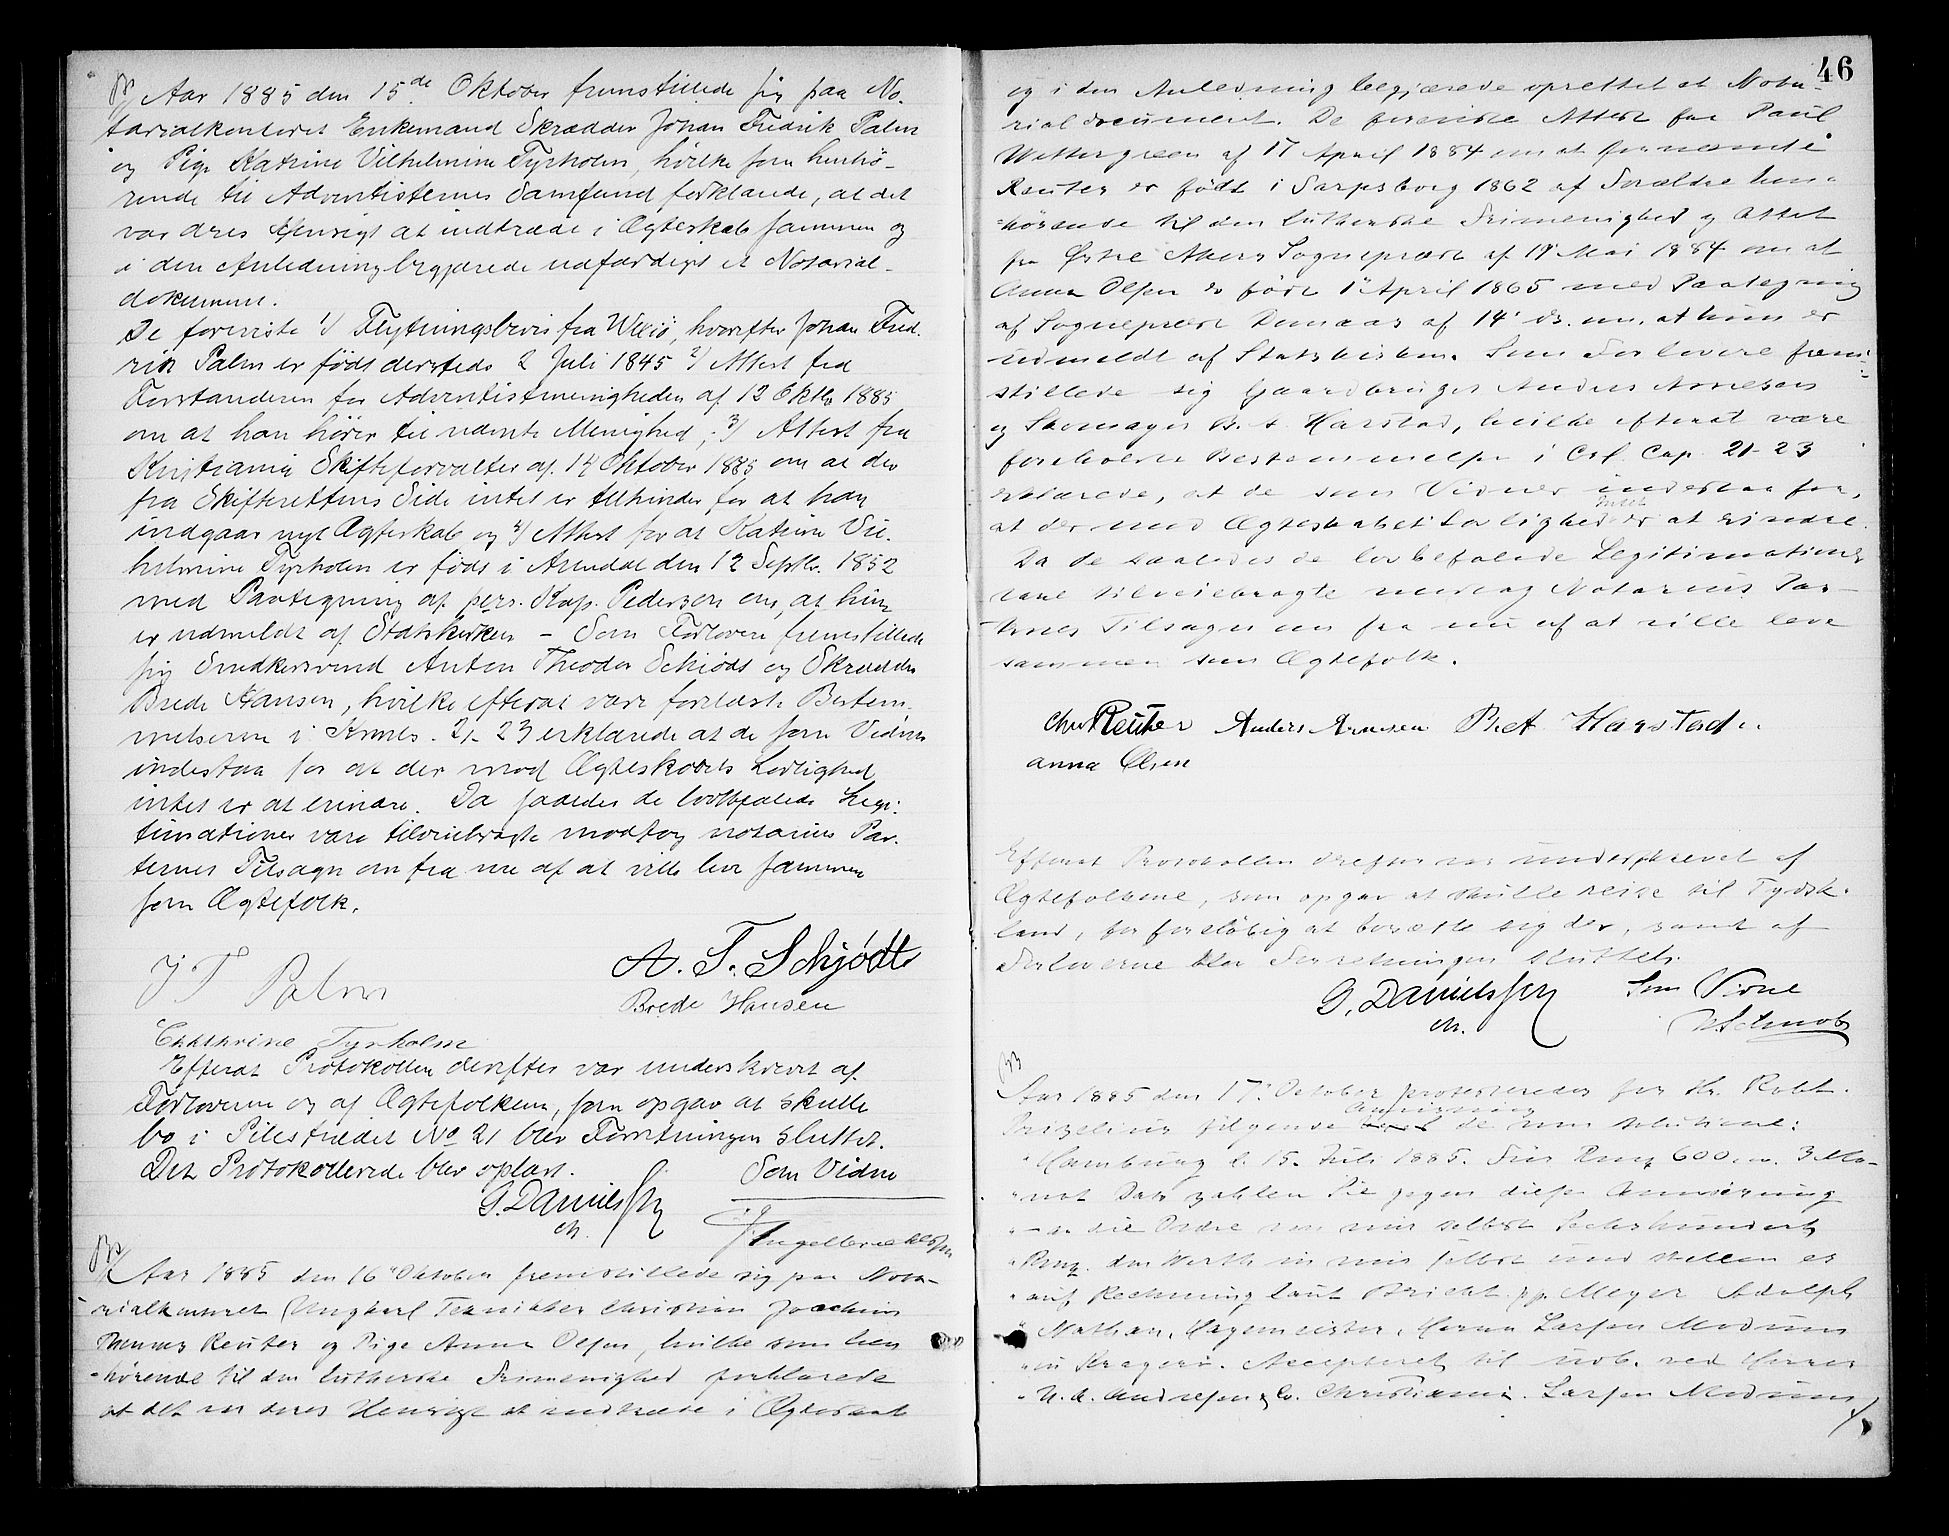 Aar 1885 den 15de Oktober fremstillede sig paa No-
tarialkontoret Enkemand Skrædder Johan Fredrik Palm
og Pige Katrine Vilhelmine Tyrholm, hvilke som henhø-
rende til Adventisternes Samfund forklarede, at det
var deres Hensigt at indtræde i Ægteskab sammen og
i den Anledning begjærede udfærdiget et Notarial-
dokument.
De foreviste 1/ Flytningsbevis fra Wexiö, hvorefter Johan Fred-
rik Palm er født dersteds 2 Juli 1845 2/ Attest fra
Forstanderen for Adventistmenigheden af 12 Oktbr 1885
om at han hører til nævnte Menighed, 3/ Attest fra
Kristiania Skifteforvalter af 14 Oktober 1885 om at der
fra Skifterettens Side intet er tilhinder for at han
indgaar nyt Ægteskab og 4/ Attest for at Katrine Vil-
helmine Tyrholm er født i Arendal den 12 Septbr. 1852
med Paategning af pers. Kap. Pedersen om, at hun
er udmeldt af Statskirken – Som Forlovere fremstillede
sig Snedkersvend Anton Theodor Schiødt og Skrædder
Brede Hansen, hvilke efterat være forelæste Bestem-
melserne i 2/- 23 erklærede at de som Vidner
indestaa for at der mod Ægteskabets Lovlighed
intet er at erindre. Da saaledes de lovbefalede Legi-
timationer vare tilveiebragte modtog notarius Par-
ternes Tilsagn om fra nu af at ville leve sammen
som Ægtefolk.
J F Palm A. T. Schjødt
Brede Hansen
Cathrine Tyrholm
Efterat Protokollen derefter var underskrevet af
Forloverne og af Ægtefolkene, som opgav at skulle
bo i Pilestrædet No 21 blev Forretningen sluttet.
Det Protokollerede blev oplæst. Som Vidne
G. Danielsen
cst. Ingelbrechtsen
Aar 1885 den 16 Oktober fremstillede sig paa Nota-
rialkontoret Ungkarl Tekniker Christian Joachim
Reuter og Pige Anna Olsen, hvilke som hen-
hørende til den lutherske Frimenighed forklarede
at det var deres Hensigt at indtræde i Ægteskab
46
og i den Anledning begjærede oprettet et Nota-
rialdocument. De foreviste Attest fra Paul
Wettergreen af 17 April 1884 om at fornævnte
Reuter er født i Sarpsborg 1862 af Forældre hen-
hørende til den lutherske Frimenighed og Attest
fra Østre Akers Sognepræst af 19 Mai 1884 om at
Anna Olsen er født 1 April 1865 med Paategning
af Sognepræst af 14' ds. om, at hun er
udmeldt af Statskirken. Som Forlovere frem-
stillede sig Gaardbruger Anders Arnesen
og Skomager B. A. Harstad, hvilke efterat være
foreholdte Bestemmelserne i Crf. Cap. 21-23
erklærede, at de som Vidner indestaa for,
at der mod Ægteskabets Lovlighed intet er at erindre.
Da de saaledes de lovbefalede Legitimationer
vare tilveiebragte modtog Notarius Par-
ternes Tilsagn om fra nu af at ville leve
sammen som Ægtefolk.
Chr Reuter Anders Arnesen Harstad
Anna Olsen
Efterat Protokollen derefter var underskrevet af
Ægtefolkene, som opgav at skulle reise til Tydsk-
land, for foreløbig at bosætte sig der, samt af
Forloverne blev Forretningen sluttet.
G. Danielsen Som Vidne
cst.
Aar 1885 den 17. October protesteredes for Hr. Robt.
følgende Anvisning
"Hamburg d. 15. Juli 1885. Für Rmk 600 3 Mo-
"nat Dato zahlen Sie gegen diese Anweisung
" die Ordre von mir selbst Sechshundert
"Rmk. den Werth in mir selbst und stellen es
"auf Rechnung laut Bericht pp. Meyer Adolph
"Nathan, Hagemeister. Herrn Larsen Modum
"in Kragerö. Accepteret til ved Herrer
"N. A. Andresen & Co. Christiania. Larsen Modum